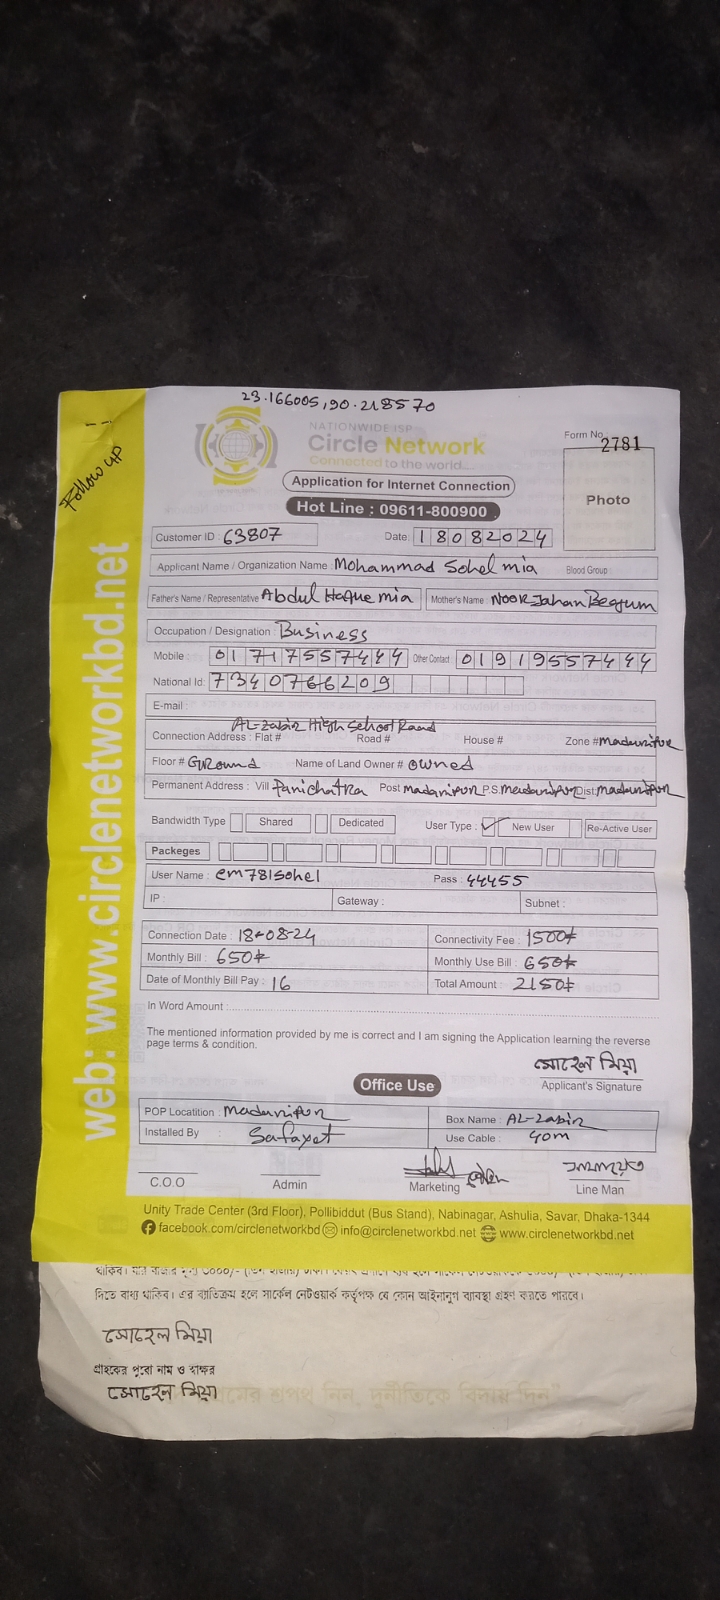 23.166005,90.218570
Follow up
NATIONWIDE ISP
Circle Network
Connected to the world...
Form No. 2781
Application for Internet Connection
Photo
Hot Line : 09611-800900
Customer ID : 63807 Date: 18082024
Applicant Name / Organization Name : Mohammad Sohel mia Blood Group :
Father's Name / Representative Abdul Haque mia Mother's Name : NOOR Jahan Begum
Occupation / Designation : Business
Mobile 01717557444 Other Contact 01919557444
National Id: 7340766209
E-mail :
AL-zabir High School Road
Connection Address : Flat # Road # House # Zone # madanipur
Floor # Ground Name of Land Owner # owned
Permanent Address : Vill Panichatra Post madanipur P.S. madanipur Dist: madanipur
Bandwidth Type Shared Dedicated User Type : ✓ New User Re-Active User
Packeges
User Name : em781sohel Pass : 44455
IP : Gateway : Subnet :
Connection Date : 18-08-24 Connectivity Fee : 1500৳
Monthly Bill : 650৳ Monthly Use Bill : 650৳
Date of Monthly Bill Pay : 16 Total Amount : 2150৳
In Word Amount :
The mentioned information provided by me is correct and I am signing the Application learning the reverse
page terms & condition.
সোহেল মিয়া
Applicant's Signature
Office Use
POP Locatition : madanipur Box Name : AL-zabir
Installed By : Safayet Use Cable : 40m
C.O.O Admin Marketing Line Man
web: www.circlenetworkbd.net
Unity Trade Center (3rd Floor), Pollibiddut (Bus Stand), Nabinagar, Ashulia, Savar, Dhaka-1344
facebook.com/circlenetworkbd info@circlenetwork.net www.circlenetworkbd.net
দিতে বাধ্য থাকিব। এর ব্যতিক্রম হলে সার্কেল নেটওয়ার্ক কর্তৃপক্ষ যে কোন আইনানুগ ব্যবস্থা গ্রহণ করতে পারবে।
সোহেল মিয়া
গ্রাহকের পুরো নাম ও স্বাক্ষর
সোহেল মিয়া